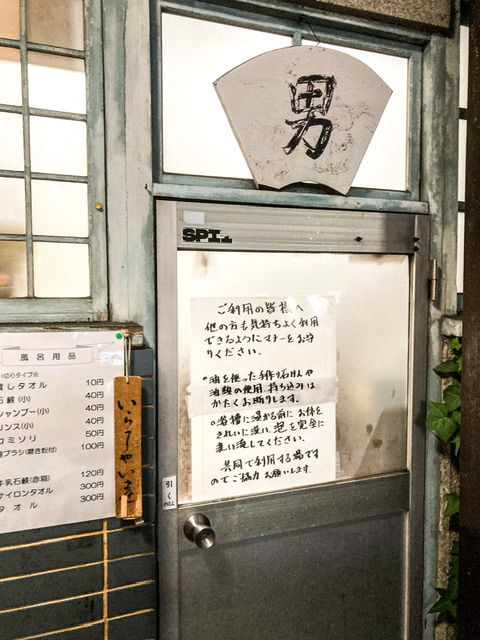 男
SPI
ご利用の皆様へ
他の方も気持ちよく利用
できるようにマナーをお守
りください。
・油を使った手作り石けんや
油類の使用、持ち込みは
かたくお断りします。
・浴槽に浸かる前に、お体を
きれいに洗い、泡を完全に
洗い流してください。
共同で利用する場です
のでご協力お願いします。
引く
PULL
風呂用品
貸しタオル 10円
石鹸(小) 40円
シャンプー(小) 40円
リンス(小) 40円
カミソリ 50円
歯ブラシ(磨き粉付) 100円
牛乳石鹸(赤箱) 120円
ナイロンタオル 300円
タオル 300円
いらっしゃいませ